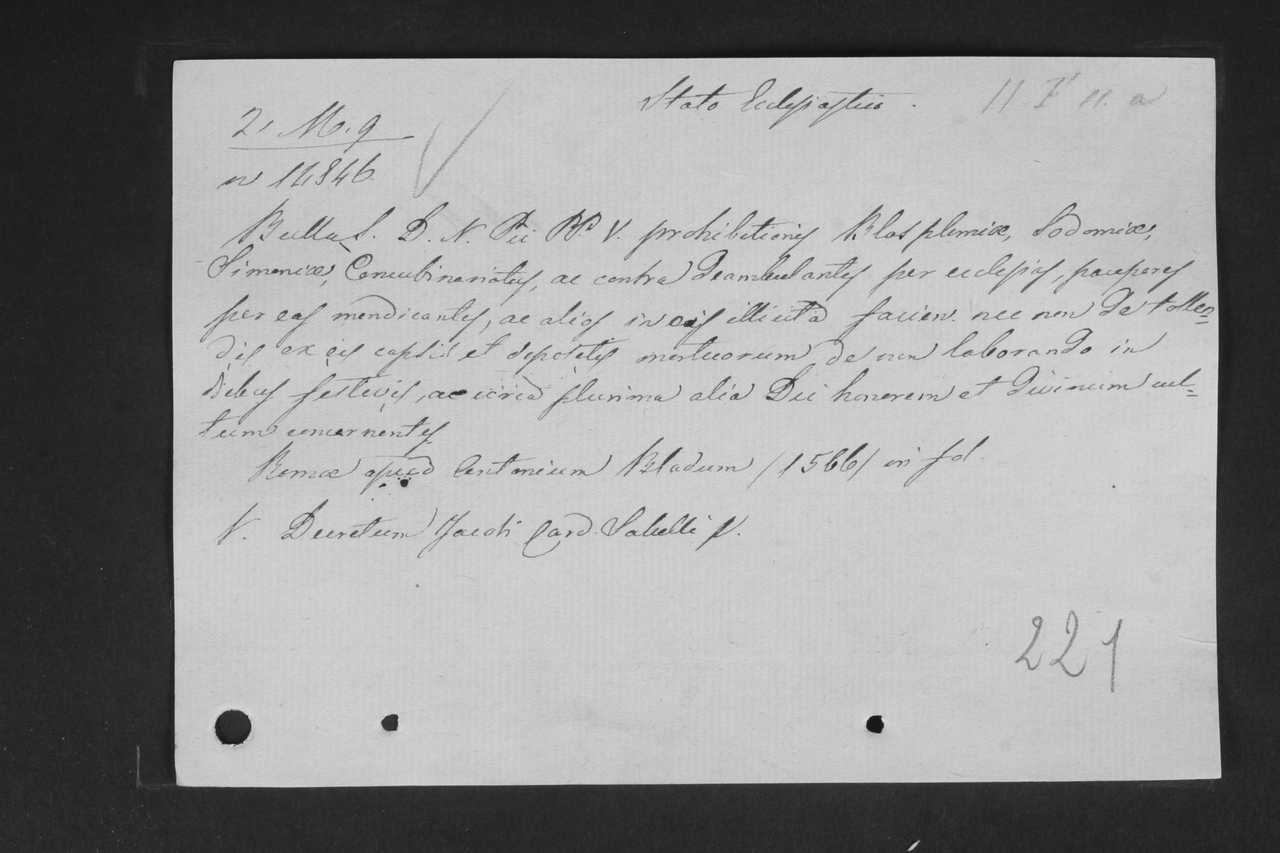 Stato Ecclesiastico.
2. M. 9
n 14846.
Bulla S. D. N. Pii PP. V. prohibitionis Blasphemiæ, Sodomiæ,
Simoniæ, Concubinariatus, ac contra Deambulantes per ecclesias, pauperes
per eas mendicantes, ac alios in eis illicita facien. nec non de tollen=
dis ex eis capsis et depositis mortuorum, de non laborando in
Diebus festivis, ac circa plurima alia Dei honorem et Divinum cul=
tum concernentes
Romæ apud Antonium Bladum (1566) in fol.
V. Decretum Jacobi Card. Sabelli V.
221